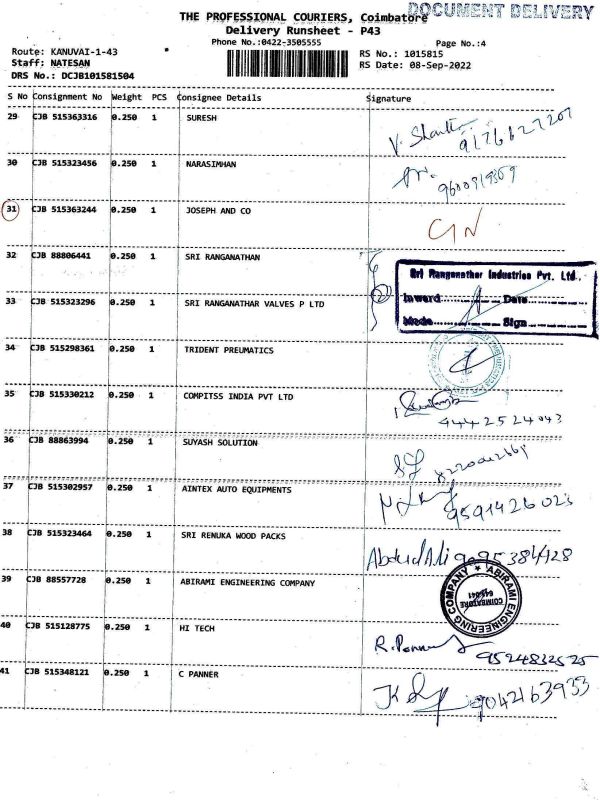 DOCUMENT DELIVERY
THE PROFESSIONAL COURIERS, Coimbatore
Delivery Runsheet - P43
Phone No.:0422-3505555
Page No.:4
Route: KANUVAI-1-43
RS No.: 1015815
Staff: NATESAN
RS Date: 08-Sep-2022
DRS No.: DCJB101581504
S No Consignment No Weight PCS Consignee Details Signature
29 CJB 515363316 0.250 1 SURESH
30 CJB 515323456 0.250 1 NARASIMHAN
31 CJB 515363244 0.250 1 JOSEPH AND CO
32 CJB 88806441 0.250 1 SRI RANGANATHAN
Sri Ranganathar Industries Pvt. Ltd.,
Inward Date
33 CJB 515323296 0.250 1 SRI RANGANATHAR VALVES P LTD
Mode Sign
34 CJB 515298361 0.250 1 TRIDENT PREUMATICS
35 CJB 515330212 0.250 1 COMPITSS INDIA PVT LTD
9442524043
36 CJB 88863994 0.250 1 SUYASH SOLUTION
37 CJB 515302957 0.250 1 AINTEX AUTO EQUIPMENTS
9591426023
38 CJB 515323464 0.250 1 SRI RENUKA WOOD PACKS
Abdul Ali 9095384428
39 CJB 88557728 0.250 1 ABIRAMI ENGINEERING COMPANY
ABIRAMI ENGINEERING COMPANY
COIMBATORE
641 041
40 CJB 515128775 0.250 1 HI TECH
9524832525
41 CJB 515348121 0.250 1 C PANNER
9042163933